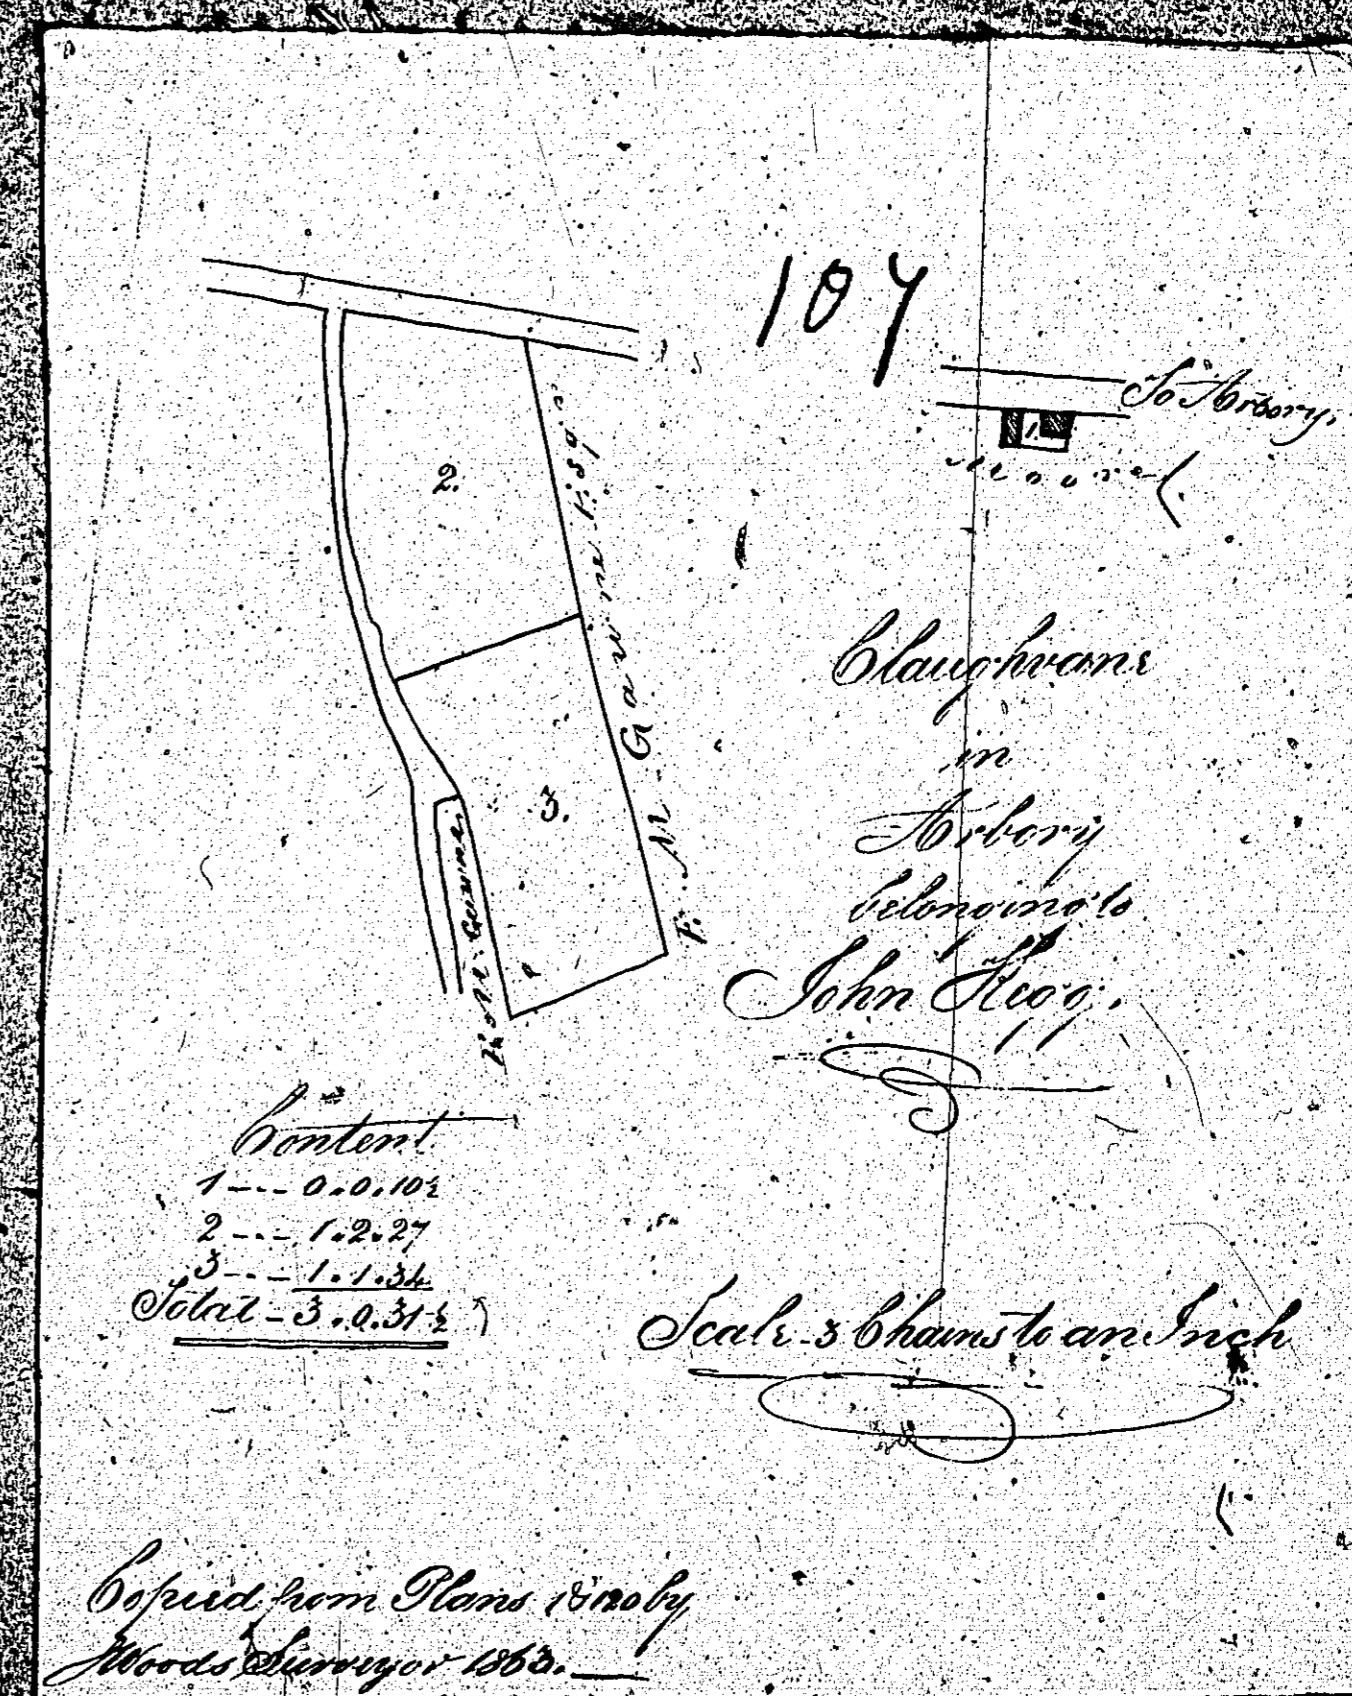 107
To Arbory,
1.
Moore
2.
3.
F. M. Gawne Esqr
Claughvane
in
Arbory
belonging to
John Kegg.
Content
1 --- 0.0.10½
2 --- 1.2.27
3 --- 1.1.34
Total - 3.0.31½
Scale 3 Chains to an Inch
Copied from Plans by
Woods Surveyor 1863.